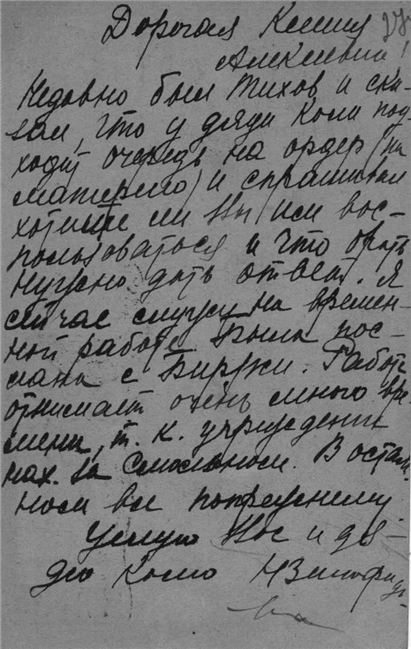 Дорогая Ксения 27
Алексеевна!
Недавно был Тихов и ска-
зал, что у дяди Коли под-
ходит очередь на ордер (на
материю) и спрашивал
хотите ли Вы им вос-
пользоваться и что брать
нужно дать ответ. Я
сейчас служу на времен-
ной работе. Была пос-
лана с Биржи. Работа
отнимает очень много вре-
мени, т. к. учреждение
нах. за Смольном. В осталь
ном все попрежнему.
Целую Вас и дя-
дю Колю